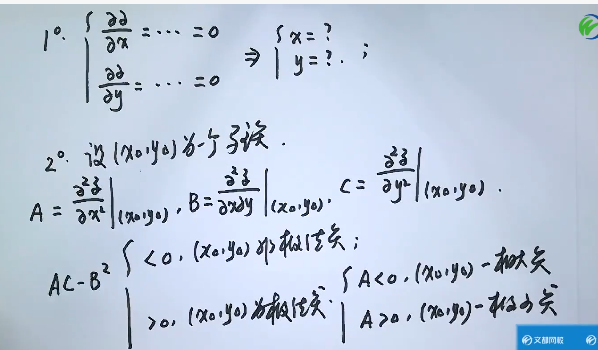 1°. { ∂z/∂x = ⋯ = 0
∂z/∂y = ⋯ = 0 ⇒ { x = ?
y = ?. ;
2°. 设(x₀,y₀)为一个驻点.
A = ∂²z/∂x² |(x₀,y₀), B = ∂²z/∂x∂y |(x₀,y₀), C = ∂²z/∂y² |(x₀,y₀).
AC-B² { <0, (x₀,y₀)非极值点;
>0, (x₀,y₀)为极值点. { A<0, (x₀,y₀)-极大点
A>0, (x₀,y₀)-极小点
文都网校